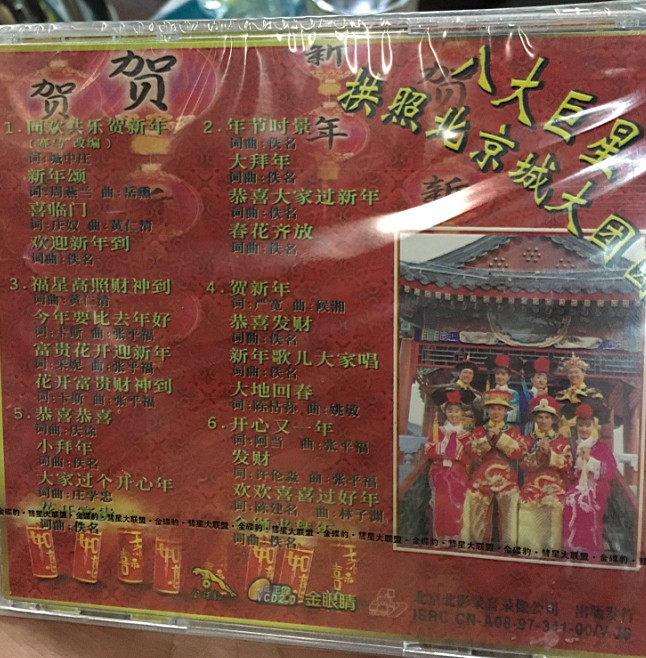 贺
贺
新
年
八大巨星
拱照北京城大团
1.同欢共乐贺新年
新年颂
喜临门
词:庄奴 曲:黄仁清
欢迎新年到
词曲:佚名
2.年节时景
词曲:佚名
大拜年
词曲:佚名
恭喜大家过新年
词曲:佚名
春花齐放
词曲:佚名
3.福星高照财神到
词曲:黄仁清
今年要比去年好
词:卡斯 曲:张平福
富贵花开迎新年
曲:张平福
花开富贵财神到
词:卡斯 曲:张平福
4.贺新年
词:严宽 曲:候湘
恭喜发财
词曲:佚名
新年歌儿大家唱
词曲:佚名
大地回春
曲:姚敏
5.恭喜恭喜
小拜年
词曲:佚名
大家过个开心年
词曲:庄学忠
词曲:佚名
6.开心又一年
词:阿当 曲:张平福
发财
词:许伦淼 曲:张平福
欢欢喜喜过好年
词:陈建名 曲:林子渊
词曲:佚名
金碟豹·彗星大联盟·金碟豹·彗星大联盟·金碟豹·彗星大联盟
VCD2.0
金眼睛
出版发行
ISRC CN-A08-97-341-00/V.J6